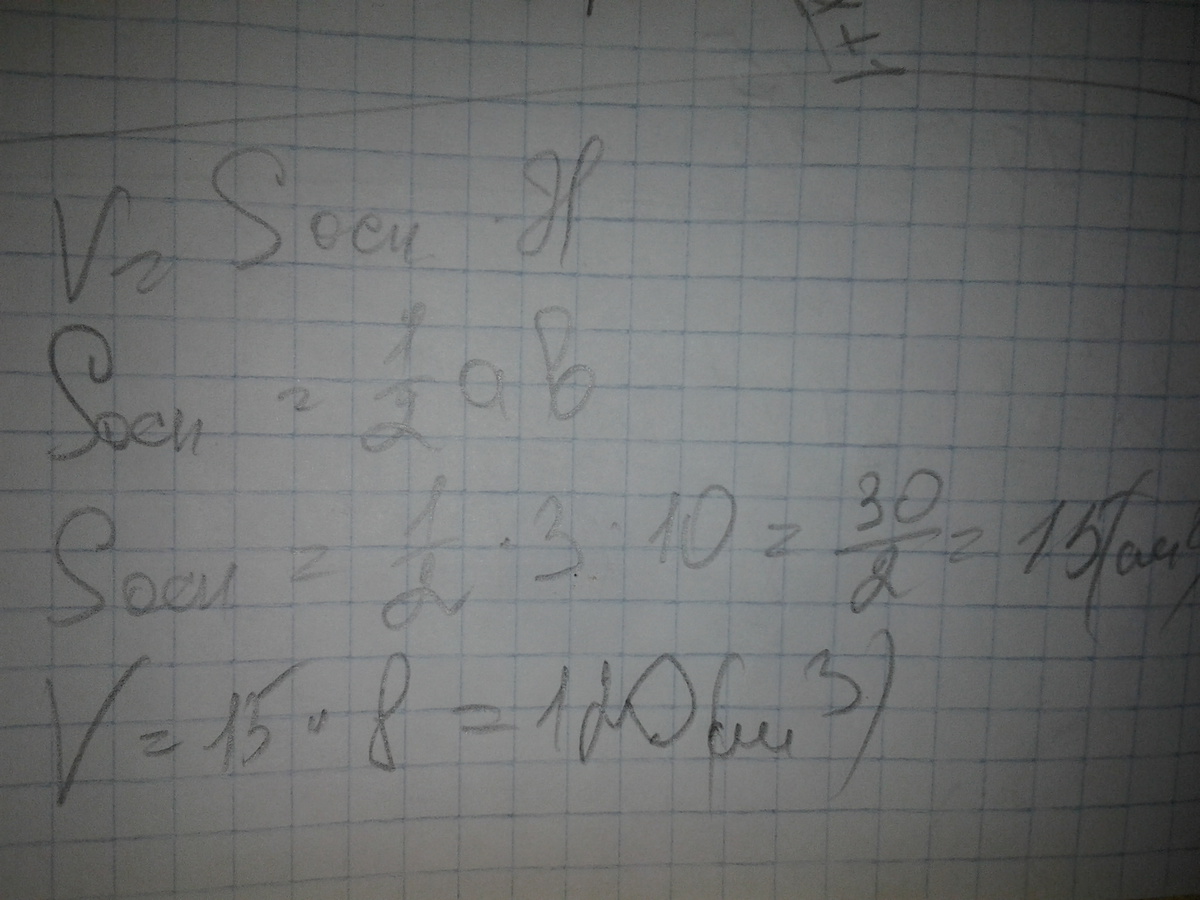 V = Sосн · H
Sосн = 1/2 ab
Sосн = 1/2 · 3 · 10 = 30/2 = 15 (см
V = 15 · 8 = 120 (см³)